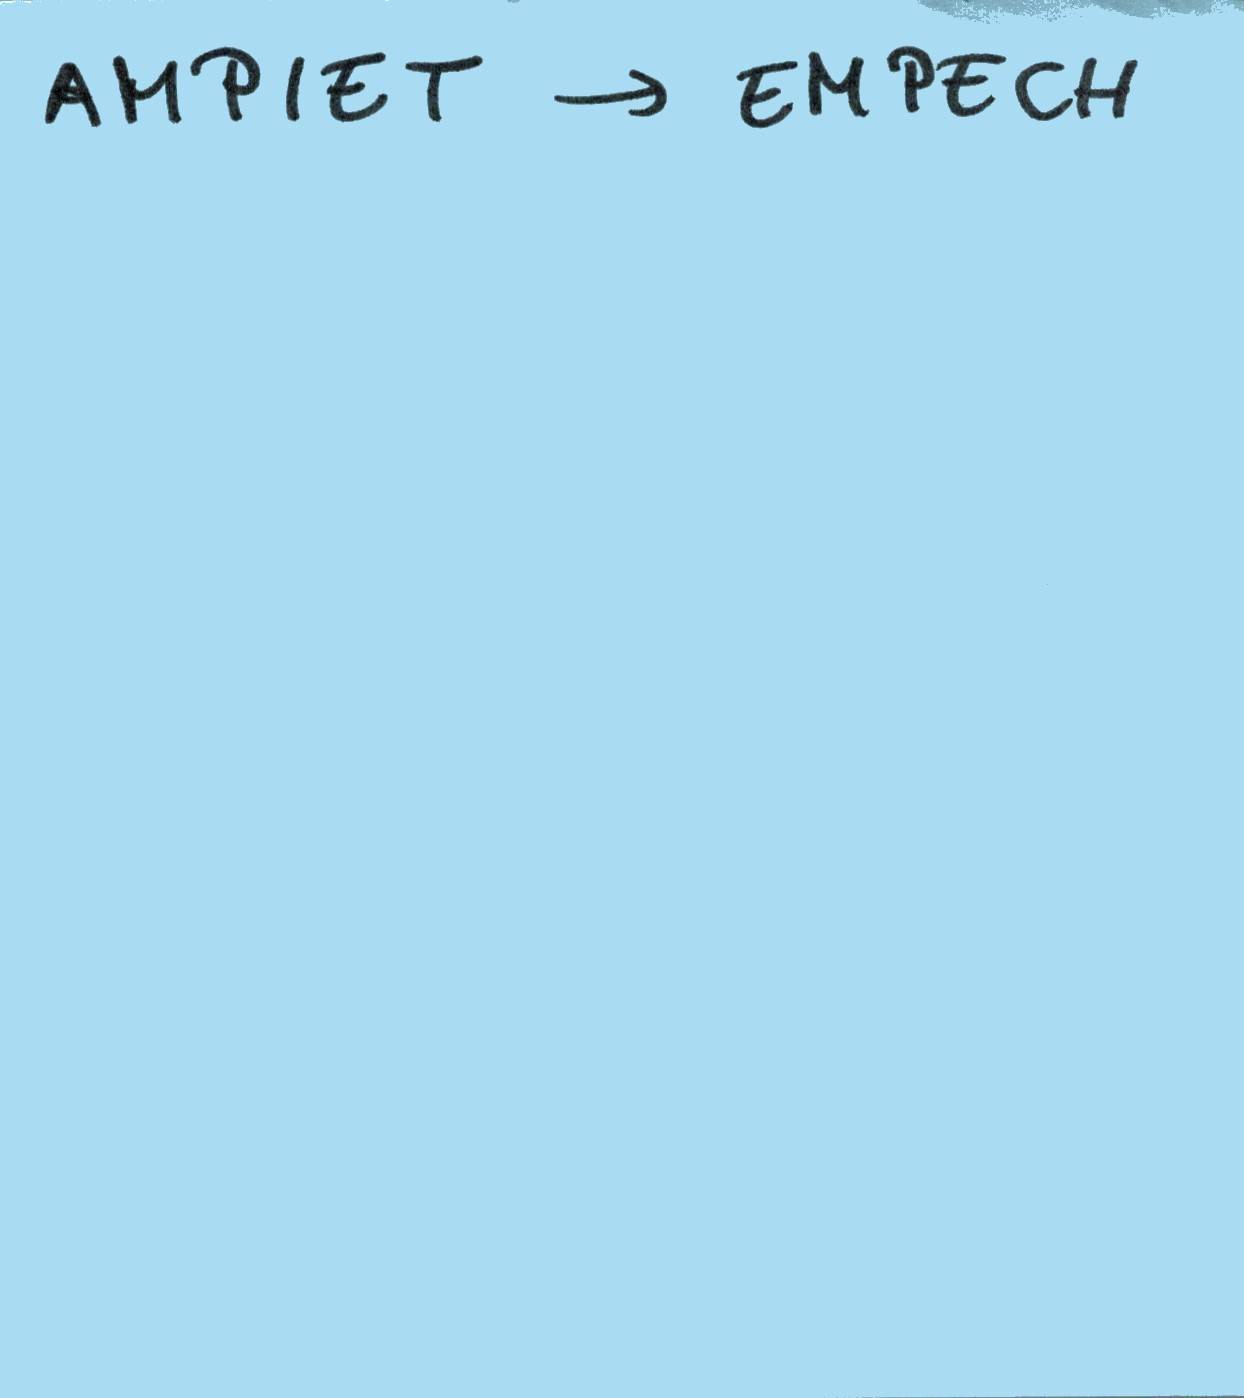 AMPIET → EMPECH